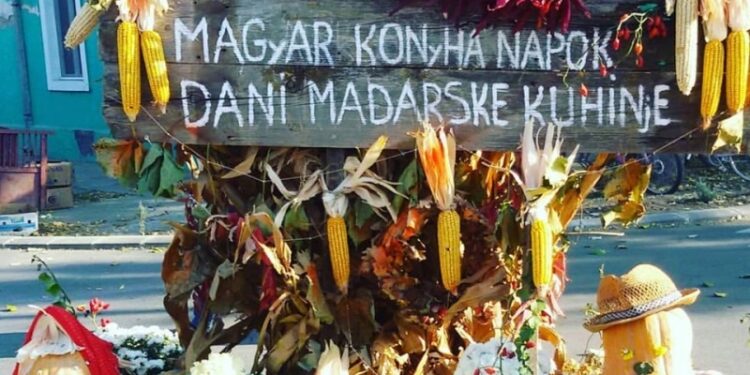 MAGyAR KONyHA NAPOK
DANI MAĐARSKE KUHINjE